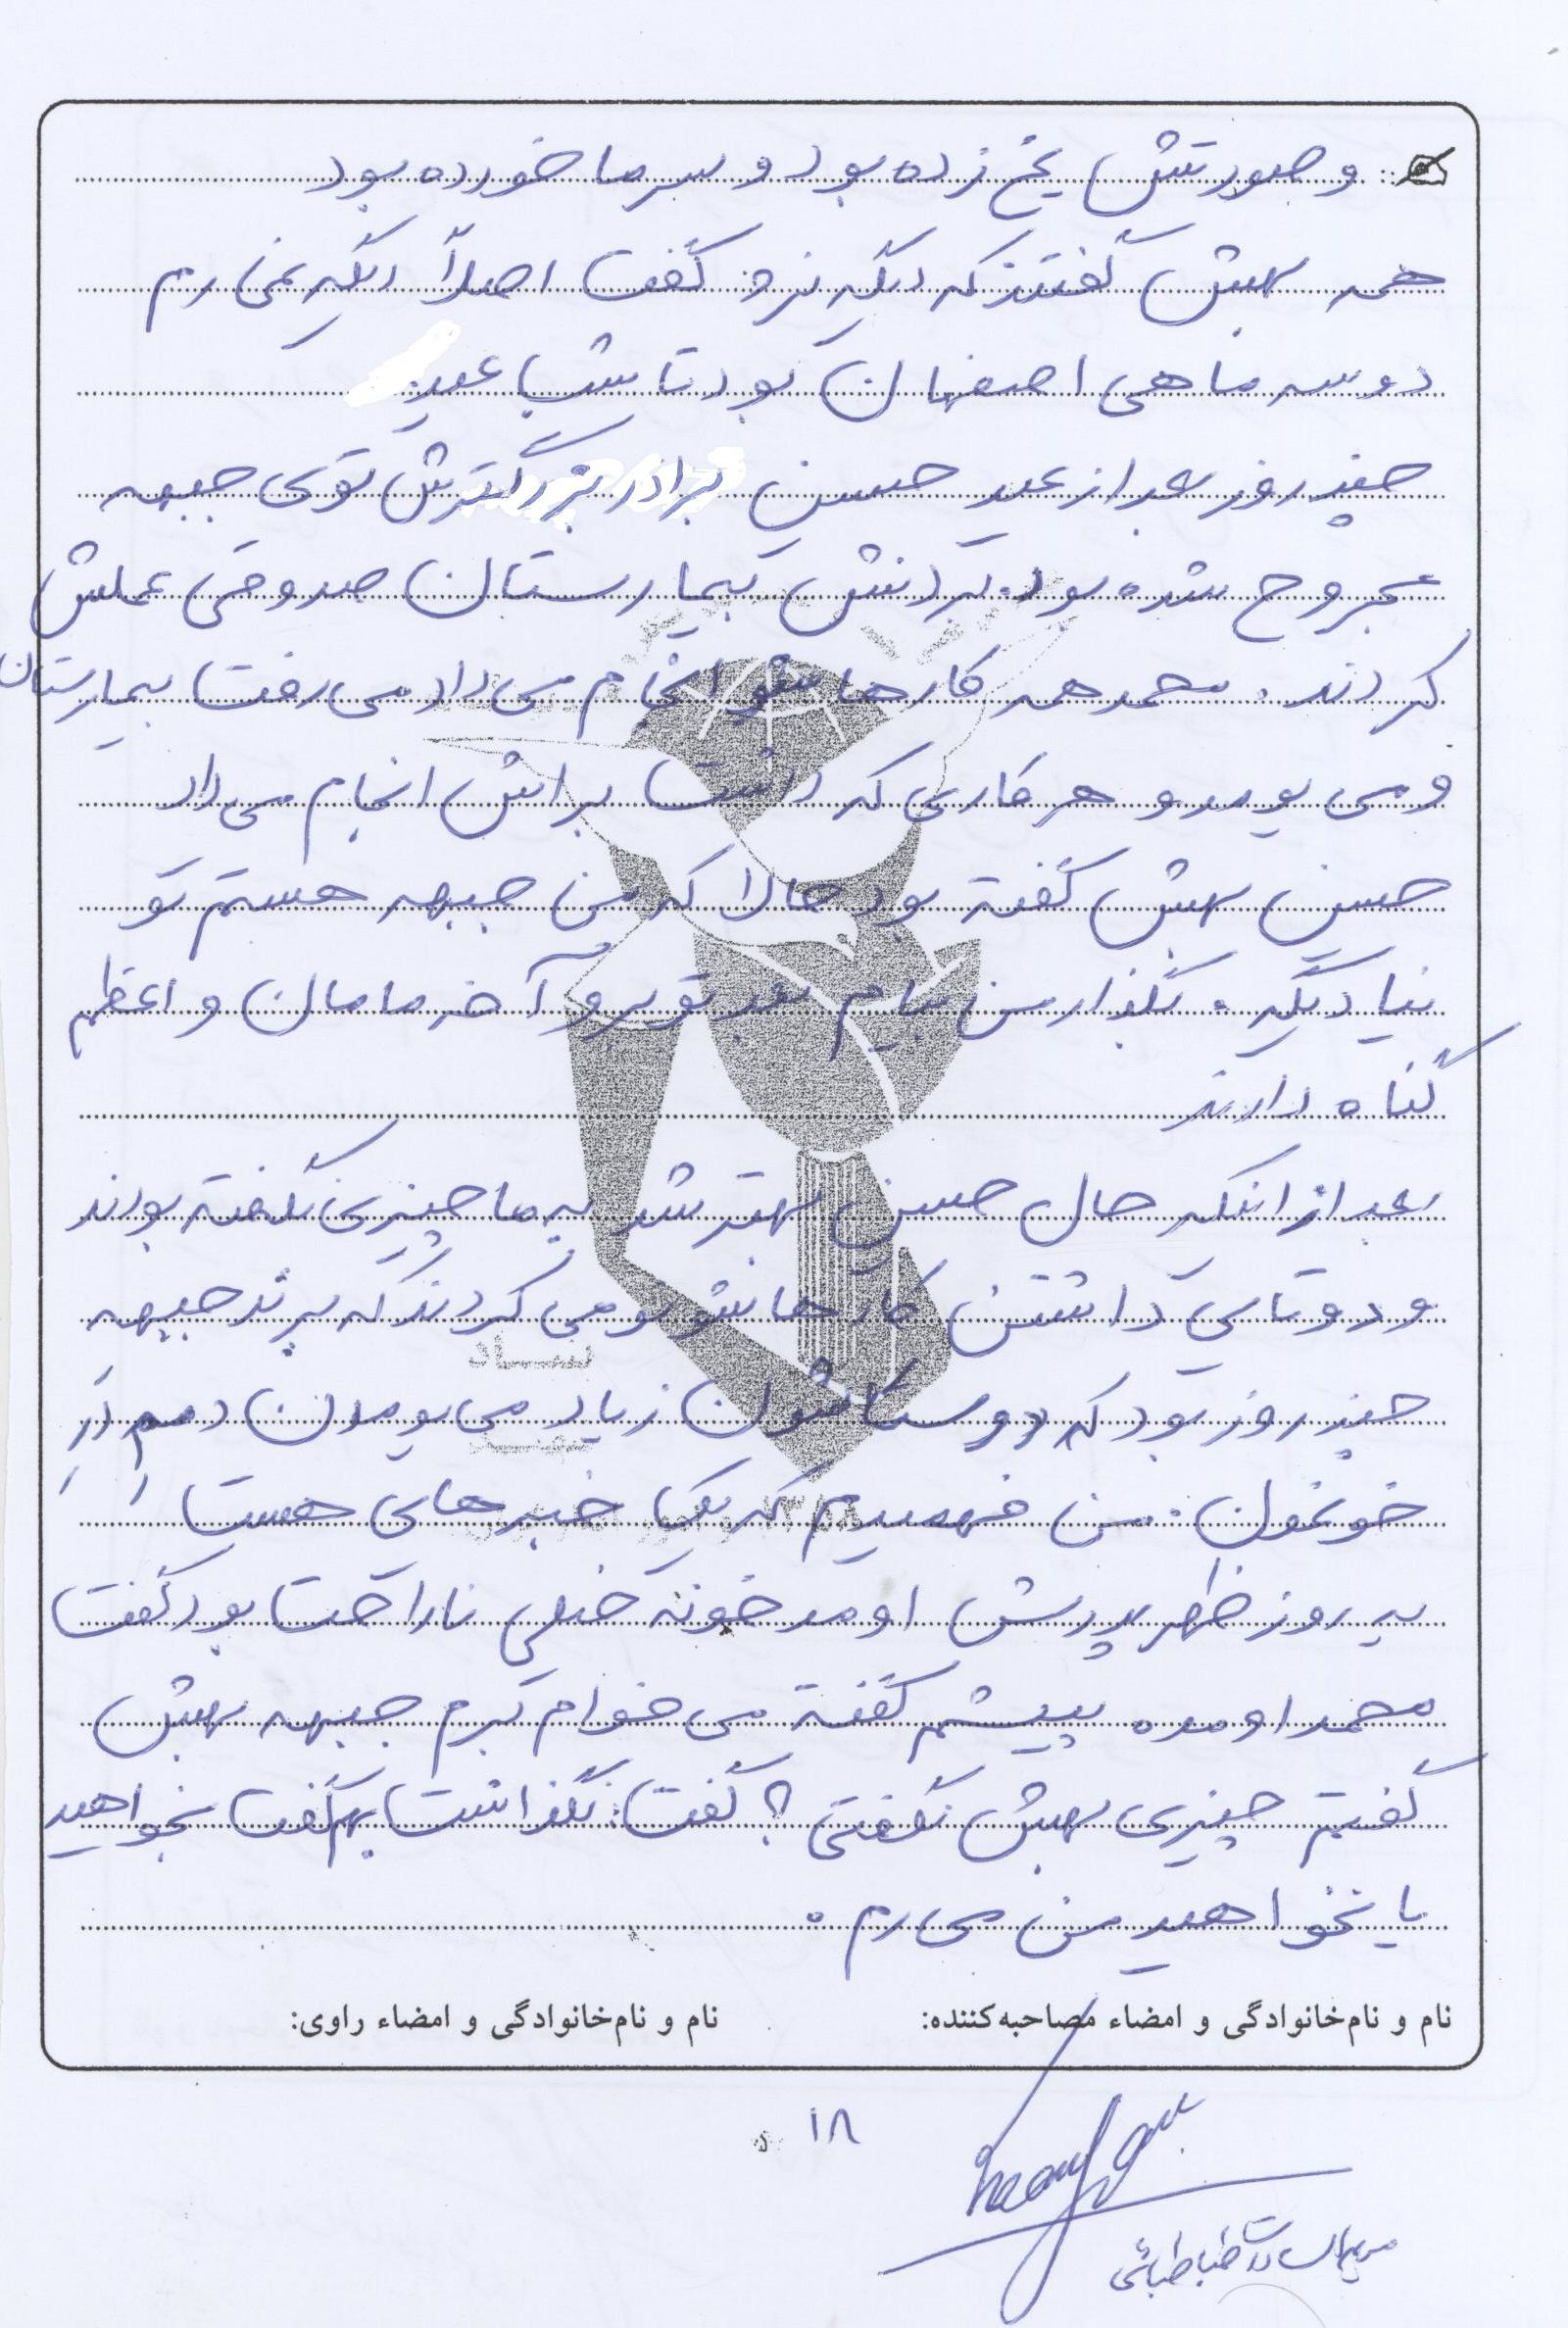 و صورتش یخ زده بود و سرما خورده بود
همه بهش گفتند که دیگه نرو. گفت اصلاً دیگه نمی رم
دو سه ماهی اصفهان بود تا شب عید.
چند روز بعد از عید حسین برادر بزرگترش توی جبهه
مجروح شده بود. بردنش بیمارستان صدوقی عملش
کردند. محمد همه کارهاشو انجام می داد می رفت بیمارستان
و می یومد و هر کاری که داشت براش انجام می داد
حسین بهش گفته بود حالا که من جبهه هستم تو
نیا دیگه. بگذار من بیام بعد تو برو آخه مامان و اعظم
گناه دارند
بعد از اینکه حال حسین بهتر شد به ما چیزی نگفته بودند
و دوتایی داشتن کارهاشونو می کردند که برند جبهه
چند روز بود که دوستاشون زیاد می یومدن دم در
خونمون. من فهمیدم که یک خبرهایی هست
یه روز ظهر پدرش اومد خونه خیلی ناراحت بود گفت
محمد اومده پیشم گفته می خوام برم جبهه بهش
گفتم چیزی بهش نگفتی؟ گفت: نگذاشت بهم گفت بخواهید
یا نخواهید من می رم.
نام و نام‌خانوادگی و امضاء مصاحبه‌کننده: نام و نام‌خانوادگی و امضاء راوی:
۱۸
مریم السادات طباطبائی